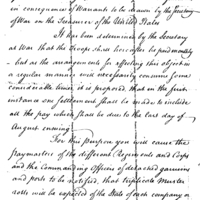 in consequence of Warrants to be drawn by the Secretary
of War on the Treasurer of the United States
It has been determined by the Secretary
at War that the Troops shall hereafter be paid monthly
but as the arrangements for effecting this object in
a regular manner will necessarily consume some
considerable time, it is proposed that in the first
instance one settlement shall be made to include
all the pay which shall be due to the last day of
August ensuing
For this purpose you will cause the
paymasters of the different Regiments and Corps
and the Commanding Officers of detached garrisons
and posts to be notified, that triplicate Muster
rolls will be expected of the State of each company or